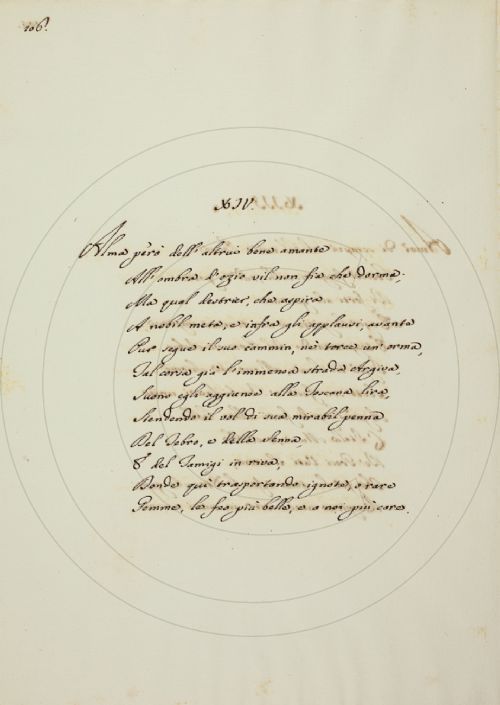 106.
XIV.
Alma però dell'altrui bene amante
All'ombra d'ozio vil non fia che dorma;
Ma qual destrier, che aspira
A nobil meta, e infra gli applausi, avante
Pur segue il suo cammin, nè torce un'orma,
Tal corsa già l'immensa strada Argiva,
Suono egli aggiunse alla Toscana lira,
Stendendo il vol di sua mirabil penna
Del Tebro, e della Senna,
E del Tamigi in riva,
Donde quì trasportando ignote, o rare
Gemme, le feo più belle, e a noi più care.